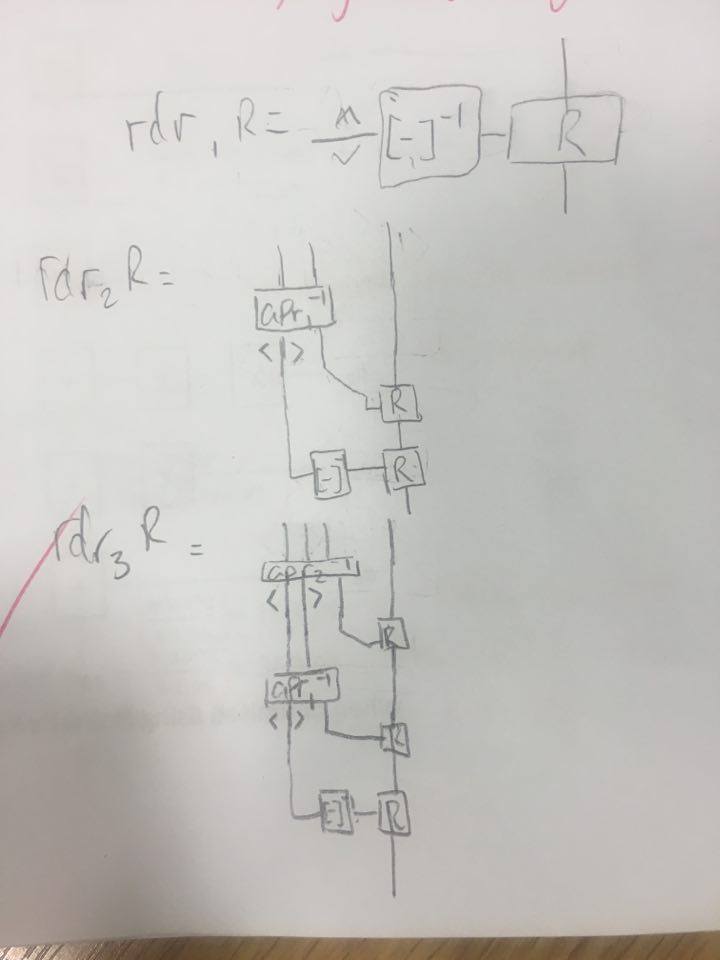 rdr, R = [-]⁻¹ R
rdr₂ R =
apr₁⁻¹
< >
R
[-] R
rdr₃ R =
apr₂⁻¹
< >
R
apr₁⁻¹
< >
R
[-] R